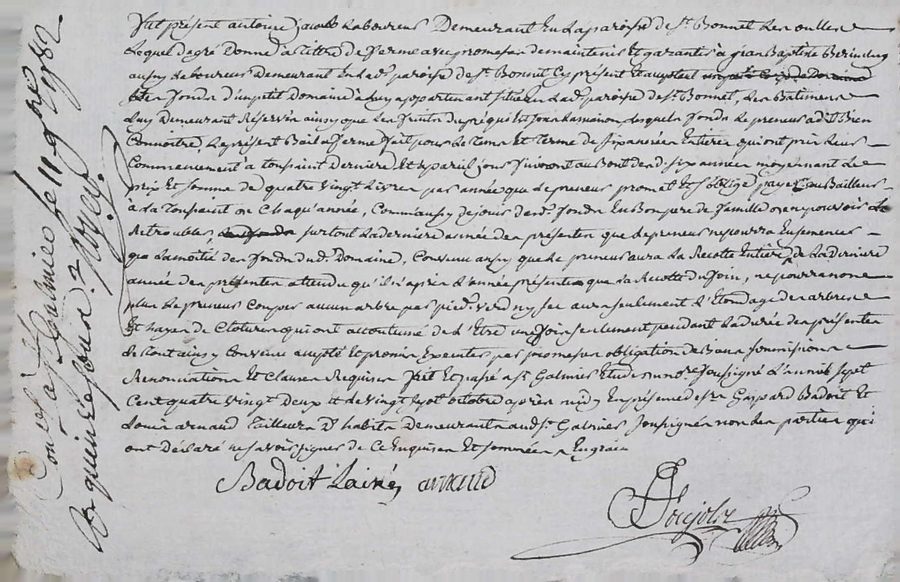 fut présent antoine jacob laboureur Demeurant En la paroisse de St Bonnet Les oulles
Lequel de gré Donne à titre de ferme avec promesse de maintenir Et garantir à jean Baptiste
aussy Laboureur Demeurant En lad. paroisse de St Bonnet Cy présent Et acceptant
Les fonds d'un petit Domaine à luy appartenant situé En lad. paroisse de St Bonnet, Les Batiments
Luy Demeurant Réservés ainsy que Les fruits du pré qui Est sous la maison, Lesquels fonds Le preneur a dit Bien
Connoitre Le présent Bail à ferme fait pour Le tems Et terme de six années Entieres qui ont pris Leur
Commencement à toussaint Derniere Et à pareil jour finiront au Bout desd. six années moyennant Le
prix Et somme de quatre vingt Livres par année que Le preneur promet Et s'oblige payer au Bailleur
à La toussaint de Chaqu'année, Comm'aussy de jouir desd. fonds En Bon pere de famille
partout La derniere année des présentes que Le preneur ne pourra Ensemencer
que La moitié des fonds dud. Domaine, Convenu aussy que Le preneur aura La Recolte Entiere de La derniere
année des présentes attendu qu'il n'a pris L'année présente que La Recolte du foin, ne pourra non
plus Le preneur Couper aucun arbre par pied verd ny sec aura seulement L'Elondage des arbres
Et hayes de Clotures qui ont accoutumé de L'Etre une fois seulement pendant La durée des présentes
Le tout ainsy Convenu accepté Et promis Executer par promesses obligation de Biens soumissions
Renonciations Et Clauses Requises fait Et passé à St Galmier Etude du no.re soussigné L'an mil sept
Cent quatre vingt Deux Et Le vingt sept octobre après midy En présence de sr Gaspard Badoit Et
Louis arnaud tailleur d'habits Demeurants aud. St Galmier soussignés non Les parties qui
ont déclaré ne savoir signer de Ce Enquises Et sommées
Badoit Lainé arnaud
Con.lé à St Galmier le 11 9bre 1782
Reçu quinze sous